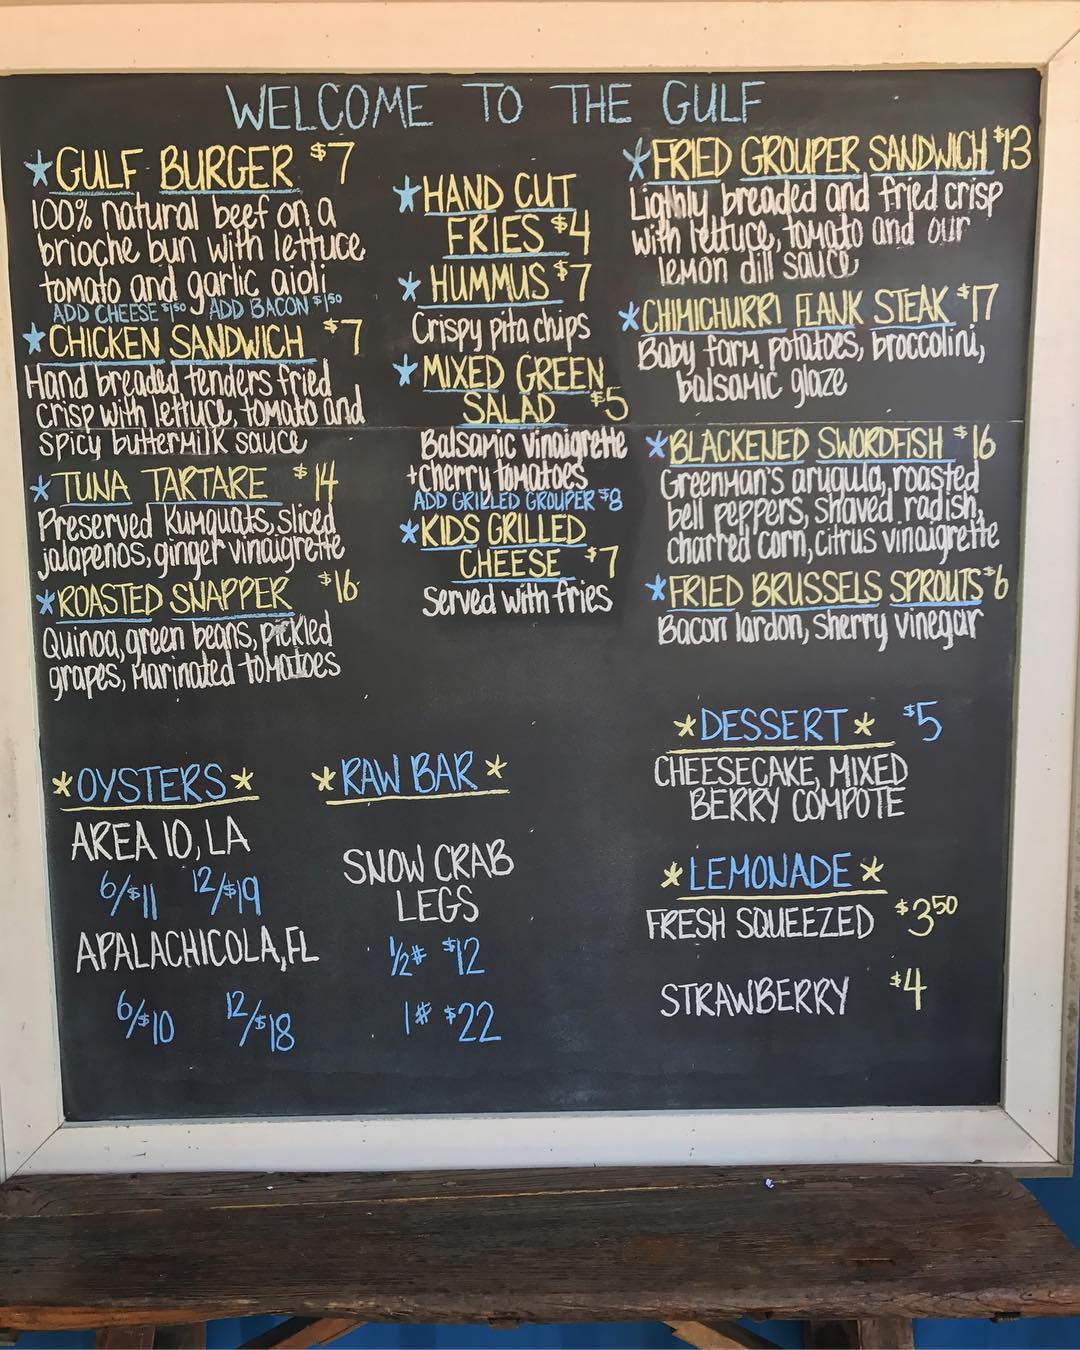 WELCOME TO THE GULF
*GULF BURGER $7
100% natural beef on a
brioche bun with lettuce
tomato and garlic aioli
ADD CHEESE $1.50 ADD BACON $1.50
*CHICKEN SANDWICH $7
Hand breaded tenders fried
crisp with lettuce, tomato and
spicy buttermilk sauce
*TUNA TARTARE $14
Preserved Kumquats, sliced
jalapenos, ginger vinaigrette
*ROASTED SNAPPER $16
Quinoa, green beans, pickled
grapes, marinated tomatoes
*HAND CUT
FRIES $4
*HUMMUS $7
Crispy pita chips
*MIXED GREEN
SALAD $5
Balsamic vinaigrette
+cherry tomatoes
ADD GRILLED GROUPER $8
*KIDS GRILLED
CHEESE $7
Served with fries
*FRIED GROUPER SANDWICH $13
Lighly breaded and fried crisp
with lettuce, tomato and our
lemon dill sauce
*CHIMICHURRI FLANK STEAK $17
Baby farm potatoes, broccolini,
balsamic glaze
*BLACKENED SWORDFISH $16
Greenman's arugula, roasted
bell peppers, shaved radish,
charred corn, citrus vinaigrette
*FRIED BRUSSELS SPROUTS $6
Bacon lardon, sherry vinegar
*OYSTERS*
AREA 10, LA
6/$11 12/$19
APALACHICOLA, FL
6/$10 12/$18
*RAW BAR*
SNOW CRAB
LEGS
1/2# $12
1# $22
*DESSERT* $5
CHEESECAKE, MIXED
BERRY COMPOTE
*LEMONADE*
FRESH SQUEEZED $3.50
STRAWBERRY $4